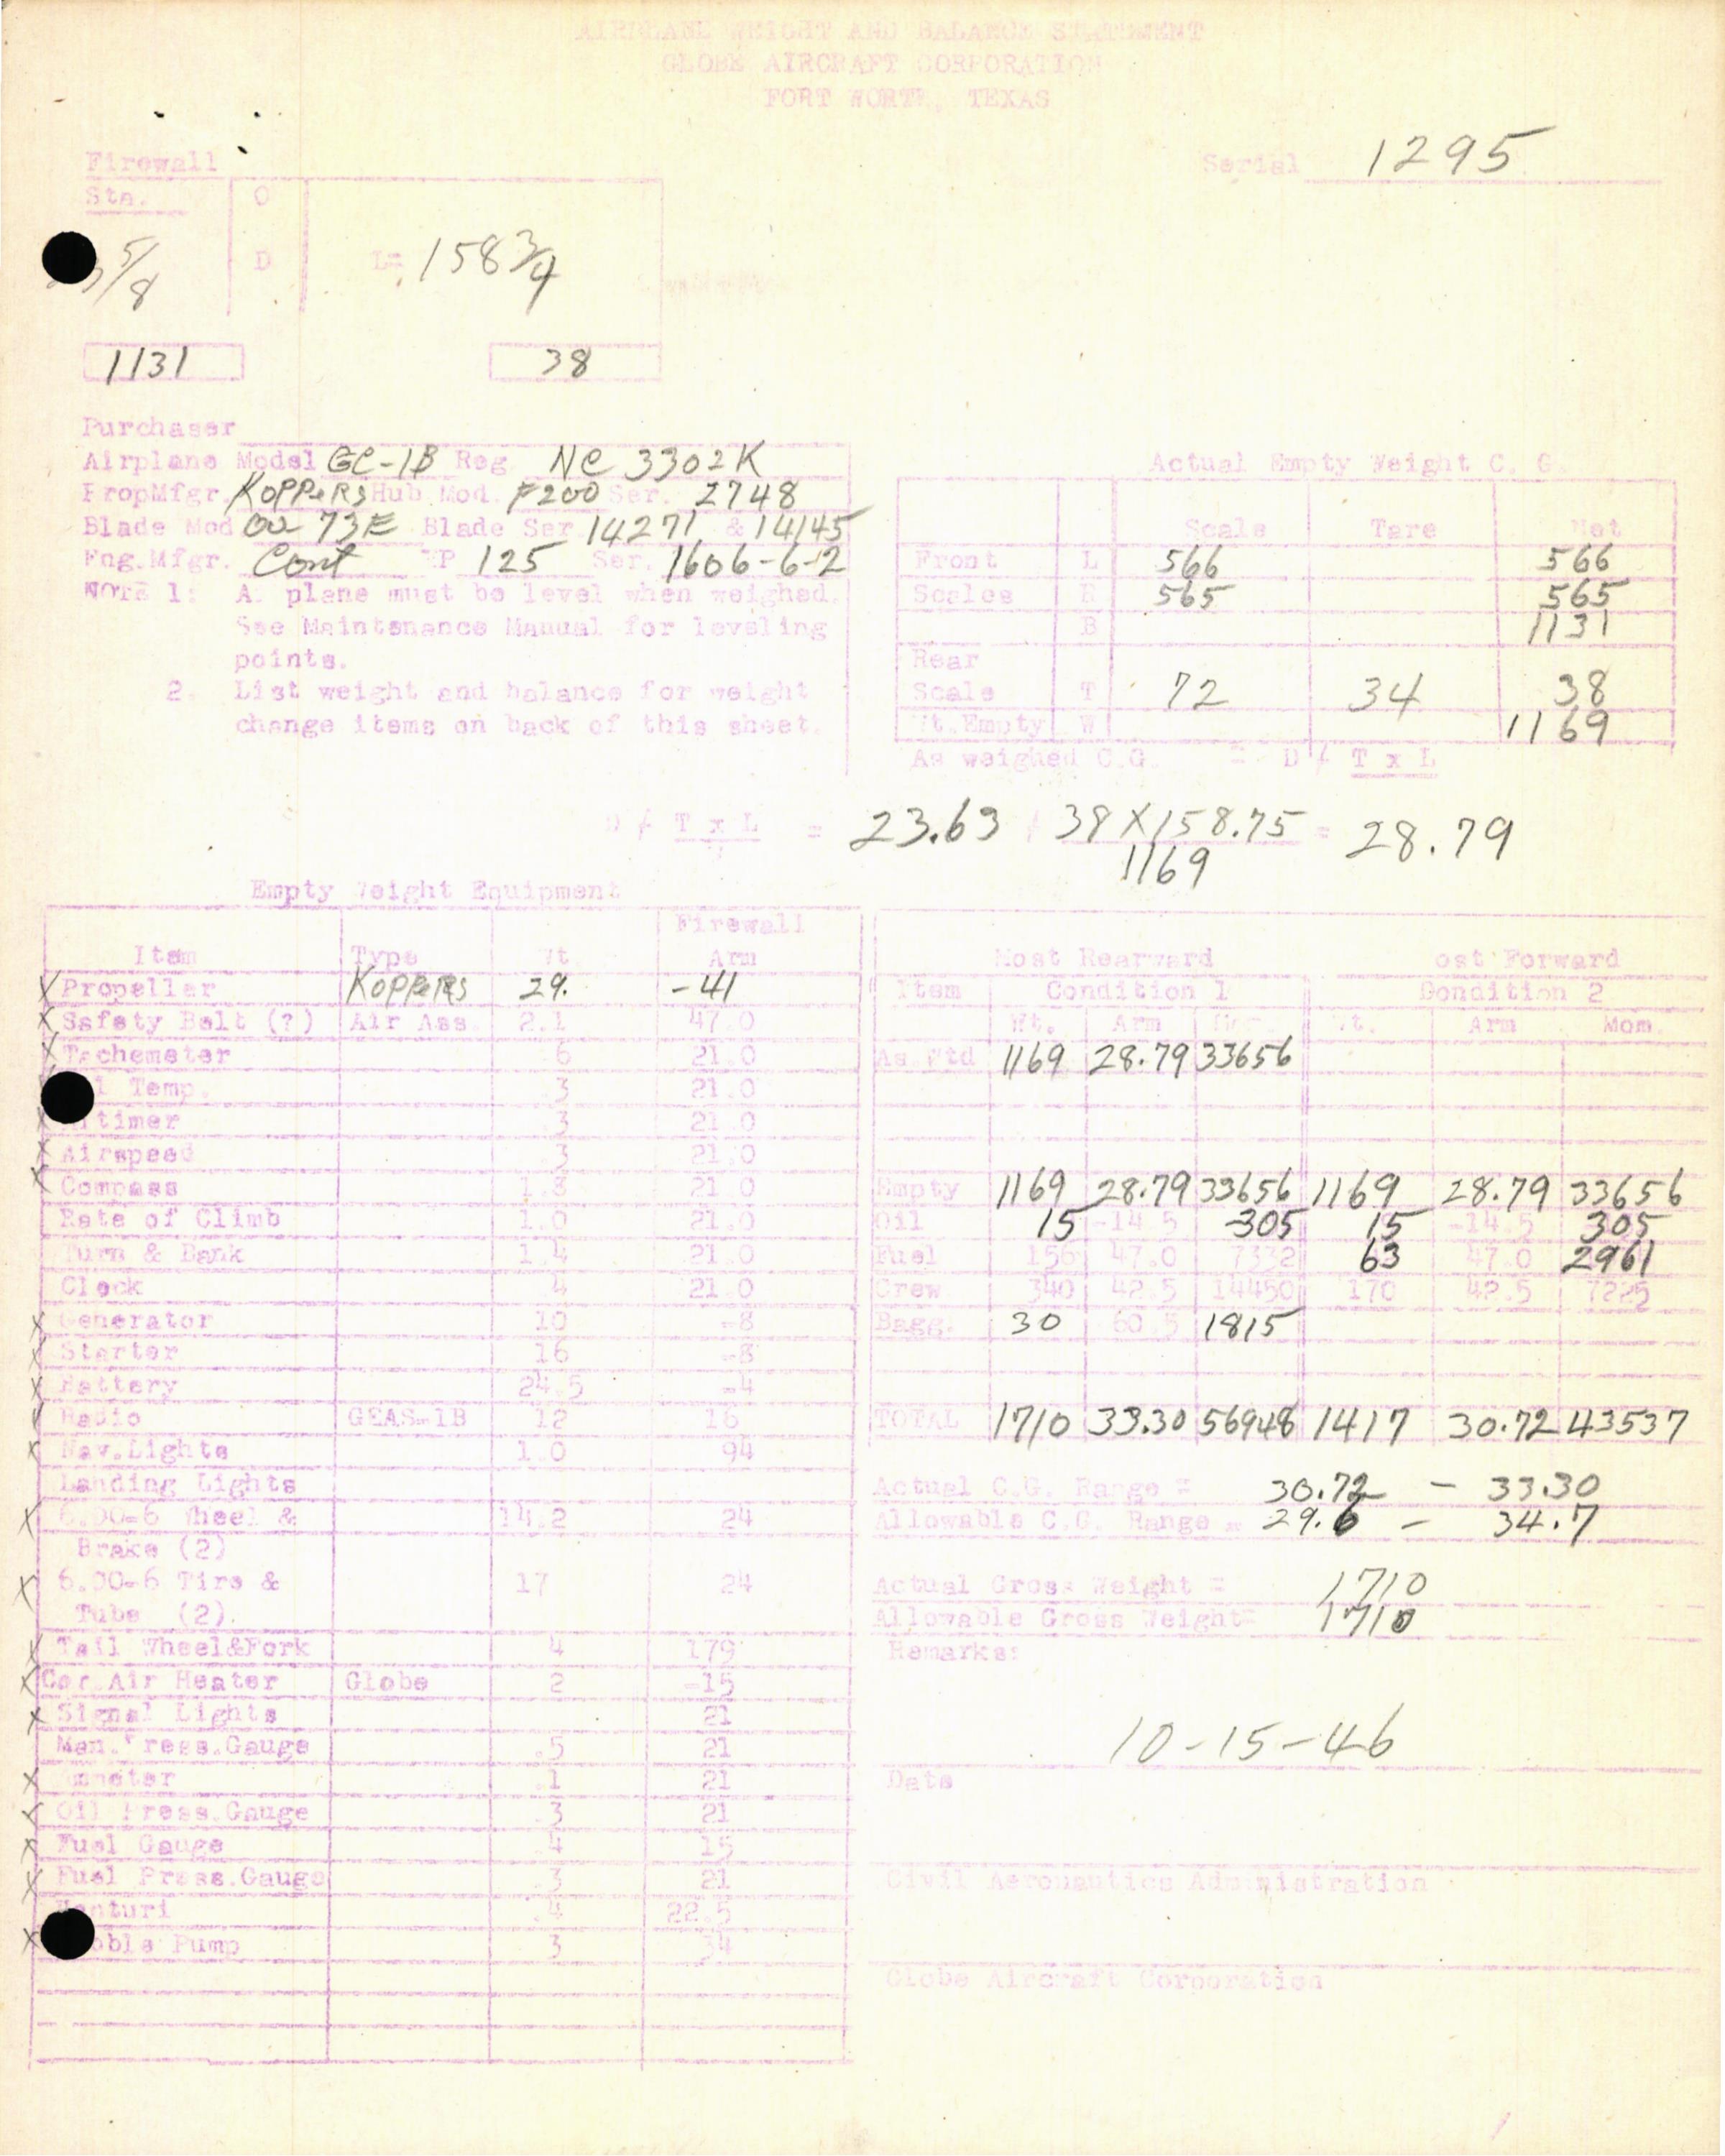 AIRPLANE WEIGHT AND BALANCE STATEMENT
GLOBE AIRCRAFT CORPORATION
FORT WORTH, TEXAS
Serial 1295
Firewall
Sta. O
5/8 D L= 158 3/4
1131 38
Purchaser
Airplane Model GC-1B Reg NC 3302K
PropMfgr. KOPPERS Hub Mod. F200 Ser. 2748
Blade Mod 73E Blade Ser 14271 & 14145
Eng.Mfgr. Cont HP 125 Ser. 1606-6-2
NOTE 1: A plane must be level when weighed.
See Maintenance Manual for leveling
points.
2. List weight and balance for weight
change items on back of this sheet.
Actual Empty Weight C. G.
Scale Tare Net
Front L 566 566
Scales R 565 565
B 1131
Rear
Scale T 72 34 38
Wt.Empty W 1169
As weighed C.G. = D / T x L
D / T x L = 23.63 / 38 X 158.75 = 28.79
W 1169
Empty Weight Equipment
Firewall
Item Type Wt. Arm
X Propeller KOPPERS 29. -41
X Safety Belt (?) Air Ass. 2.1 47.0
X Tachemeter .6 21.0
Temp. .3 21.0
X timer .3 21.0
X Airspeed .3 21.0
X Compass 1.3 21.0
Rate of Climb 1.0 21.0
Turn & Bank 1.4 21.0
Clock .4 21.0
X Generator 10 -8
X Starter 16 -8
X Battery 24.5 -4
X Radio GEAS-1B 12 16
X Nav.Lights 1.0 94
Landing Lights
X 6.00-6 Wheel & 14.2 24
Brake (2)
X 6.00-6 Tire & 17 24
Tube (2).
X Tail Wheel&Fork 4 179
X Car.Air Heater Globe 2 -15
X Signal Lights 21
Man.Press.Gauge .5 21
X Ammeter .1 21
X Oil Press.Gauge .3 21
X Fuel Gauge .4 15
X Fuel Press.Gauge .3 21
Venturi .4 22.5
X Wobble Pump 3 34
Most Rearward Most Forward
Item Condition 1 Condition 2
Wt. Arm Mom. Wt. Arm Mom.
As Wtd 1169 28.79 33656
Empty 1169 28.79 33656 1169 28.79 33656
Oil 15 -14.5 -305 15 -14.5 305
Fuel 156 47.0 7332 63 47.0 2961
Crew 340 42.5 14450 170 42.5 7225
Bagg. 30 60.5 1815
TOTAL 1710 33.30 56948 1417 30.72 43537
Actual C.G. Range = 30.72 - 33.30
Allowable C.G. Range = 29.6 - 34.7
Actual Gross Weight = 1710
Allowable Gross Weight= 1710
Remarks:
10-15-46
Date
Civil Aeronautics Administration
Globe Aircraft Corporation